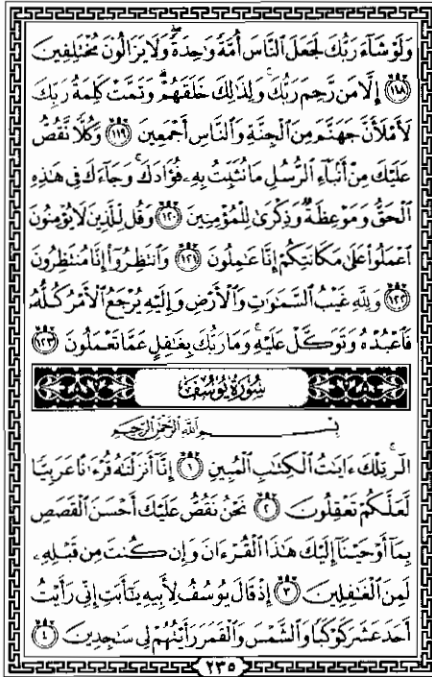 وَلَوْ شَآءَ رَبُّكَ لَجَعَلَ ٱلنَّاسَ أُمَّةً وَٰحِدَةً ۖ وَلَا يَزَالُونَ مُخْتَلِفِينَ
﴿١١٨﴾ إِلَّا مَن رَّحِمَ رَبُّكَ ۚ وَلِذَٰلِكَ خَلَقَهُمْ ۗ وَتَمَّتْ كَلِمَةُ رَبِّكَ
لَأَمْلَأَنَّ جَهَنَّمَ مِنَ ٱلْجِنَّةِ وَٱلنَّاسِ أَجْمَعِينَ ﴿١١٩﴾ وَكُلًّا نَّقُصُّ
عَلَيْكَ مِنْ أَنۢبَآءِ ٱلرُّسُلِ مَا نُثَبِّتُ بِهِۦ فُؤَادَكَ ۚ وَجَآءَكَ فِى هَٰذِهِ
ٱلْحَقُّ وَمَوْعِظَةٌ وَذِكْرَىٰ لِلْمُؤْمِنِينَ ﴿١٢٠﴾ وَقُل لِّلَّذِينَ لَا يُؤْمِنُونَ
ٱعْمَلُوا۟ عَلَىٰ مَكَانَتِكُمْ إِنَّا عَٰمِلُونَ ﴿١٢١﴾ وَٱنتَظِرُوٓا۟ إِنَّا مُنتَظِرُونَ
﴿١٢٢﴾ وَلِلَّهِ غَيْبُ ٱلسَّمَٰوَٰتِ وَٱلْأَرْضِ وَإِلَيْهِ يُرْجَعُ ٱلْأَمْرُ كُلُّهُۥ
فَٱعْبُدْهُ وَتَوَكَّلْ عَلَيْهِ ۚ وَمَا رَبُّكَ بِغَٰفِلٍ عَمَّا تَعْمَلُونَ ﴿١٢٣﴾
سُورَةُ يُوسُفَ
بِسْمِ ٱللَّهِ ٱلرَّحْمَٰنِ ٱلرَّحِيمِ
الٓر ۚ تِلْكَ ءَايَٰتُ ٱلْكِتَٰبِ ٱلْمُبِينِ ﴿١﴾ إِنَّآ أَنزَلْنَٰهُ قُرْءَٰنًا عَرَبِيًّا
لَّعَلَّكُمْ تَعْقِلُونَ ﴿٢﴾ نَحْنُ نَقُصُّ عَلَيْكَ أَحْسَنَ ٱلْقَصَصِ
بِمَآ أَوْحَيْنَآ إِلَيْكَ هَٰذَا ٱلْقُرْءَانَ وَإِن كُنتَ مِن قَبْلِهِۦ
لَمِنَ ٱلْغَٰفِلِينَ ﴿٣﴾ إِذْ قَالَ يُوسُفُ لِأَبِيهِ يَٰٓأَبَتِ إِنِّى رَأَيْتُ
أَحَدَ عَشَرَ كَوْكَبًا وَٱلشَّمْسَ وَٱلْقَمَرَ رَأَيْتُهُمْ لِى سَٰجِدِينَ ﴿٤﴾
٢٣٥